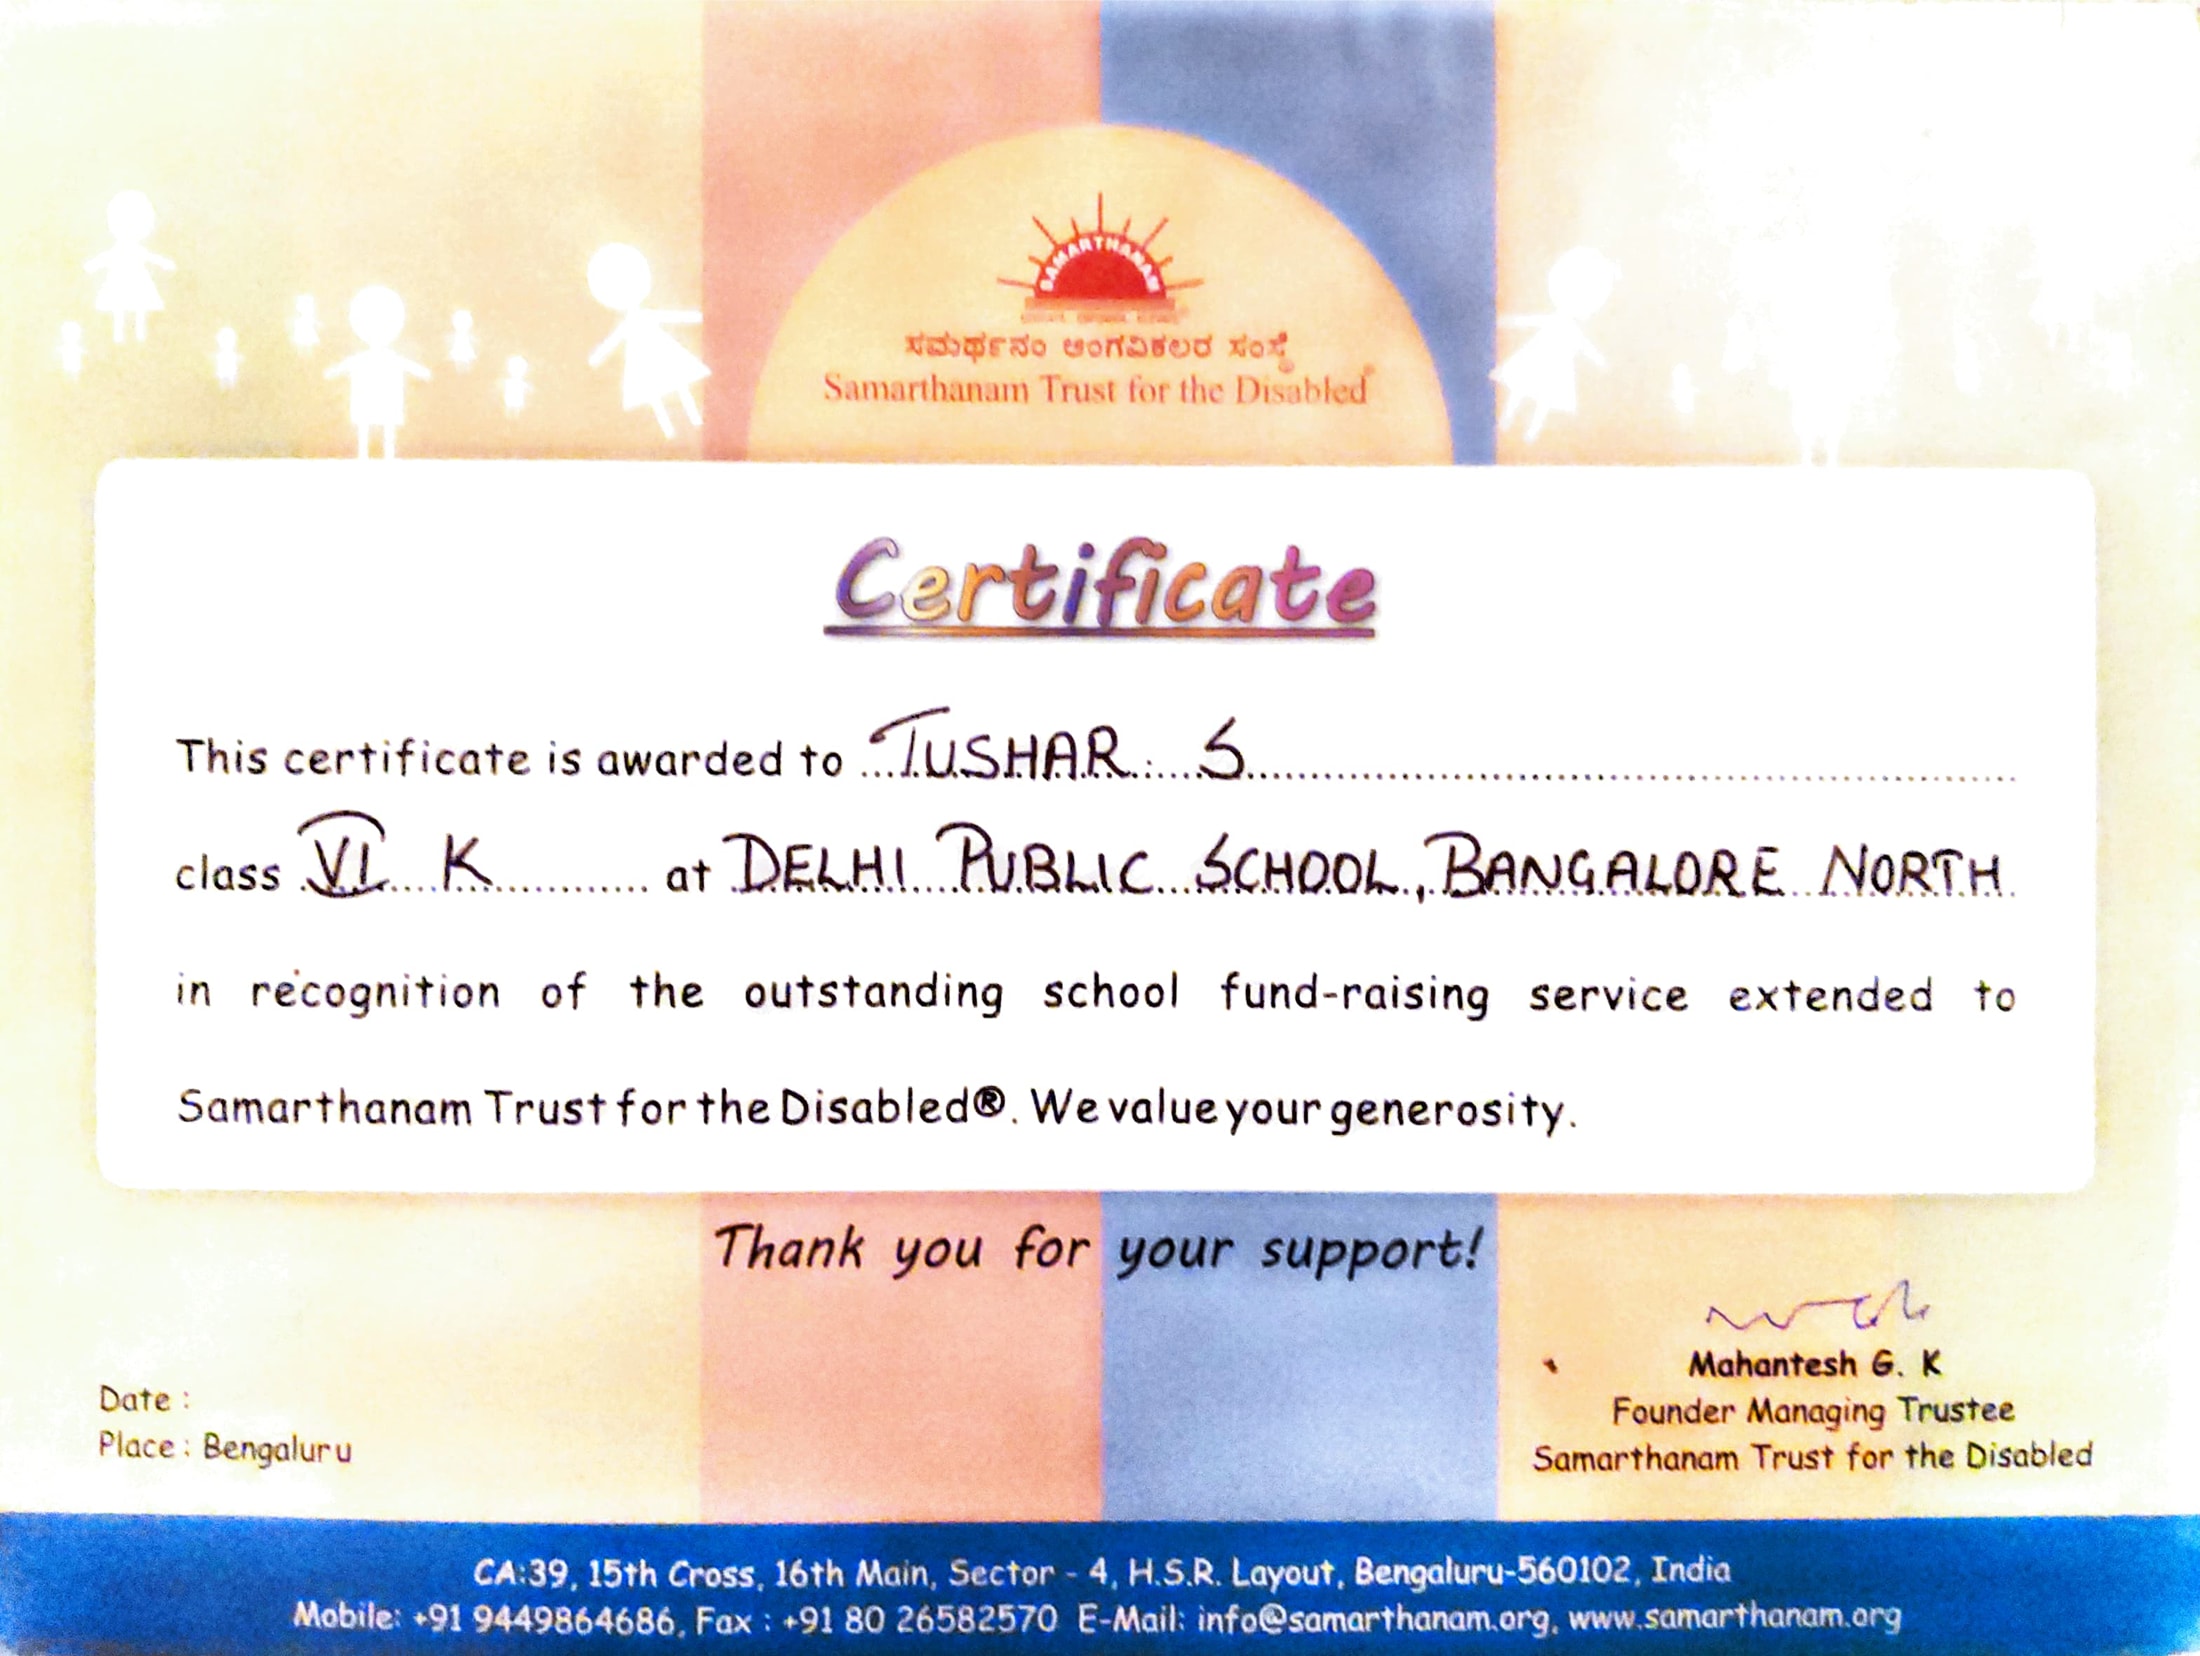 SAMARTHANAM
ಸಮರ್ಥನಂ ಅಂಗವಿಕಲರ ಸಂಸ್ಥೆ
Samarthanam Trust for the Disabled®
Certificate
This certificate is awarded to TUSHAR S
class VI K at DELHI PUBLIC SCHOOL, BANGALORE NORTH
in recognition of the outstanding school fund-raising service extended to
Samarthanam Trust for the Disabled®. We value your generosity.
Thank you for your support!
Mahantesh G. K
Founder Managing Trustee
Samarthanam Trust for the Disabled
Date :
Place : Bengaluru
CA:39, 15th Cross, 16th Main, Sector - 4, H.S.R. Layout, Bengaluru-560102, India
Mobile: +91 9449864686, Fax : +91 80 26582570 E-Mail: info@samarthanam.org, www.samarthanam.org